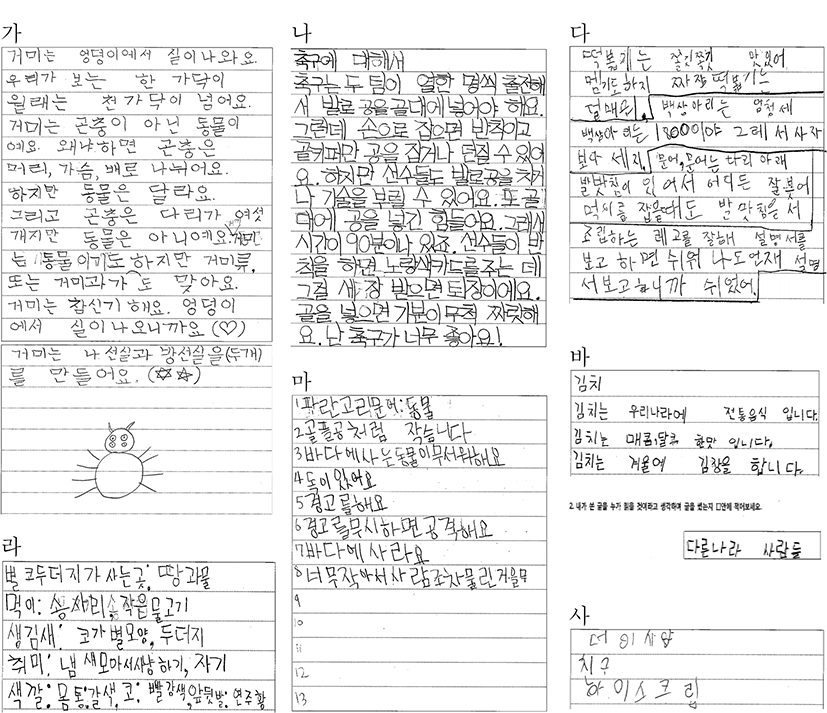 가
거미는 엉덩이에서 실이나와요.
우리가 보는 한 가닥이
원래는 천가닥이 넘어요.
거미는 곤충이 아닌 동물이
예요. 왜냐하면 곤충은
머리, 가슴, 배로 나뉘어요.
하지만 동물은 달라요.
그리고 곤충은 다리가 여섯
개지만 동물은 아니예요. 거미
는 동물이기도 하지만 거미류,
또는 거미과가 도 맞아요.
거미는 참신기해요. 엉덩이
에서 실이나오니까요(♡)
거미는 나선실과 방선실을(두개)
를 만들어요.(☆☆)
나
축구에 대해서
축구는 두팀이 열한 명씩 출전해
서 발로 공을 골대에 넣어야 해요.
그런데 손으로 잡으면 반칙이고
골키퍼만 공을 잡거나 던질 수 있어
요. 하지만 선수들도 발로공을 차거
나 기술을 부릴 수 있어요. 또 골
대에 공을 넣긴 힘들어요. 그래서
시간이 90분이나 있죠. 선수들이 반
칙을 하면 노랑색카드를 주는 데
그걸 세장 받으면 퇴장이에요.
골을 넣으면 기분이 무척 짜릿해
요. 난 축구가 너무 좋아요!
다
떡볶기는 쫄깃쫄깃 맛있어
멈기도하지 짜장떡볶기는
덜매워. 백상아리는 엄청세
백상아리는 1800이야 그레서 사자
보다 세지. 문어, 문어는 다리 아래
발밧침이 있어서 어디든 잘붓어
먹씨를 잡을때도 발맛침을 써
조립하는 레고를 잘해 설명서를
보고 하면 쉬워 나도언재 설명
서보고하니까 쉬었어.
라
별코두더지가 사는곳: 땅과물
먹이: 송사리, 작은물고기
생김새: 코가 별모양, 두더지
취미: 냄새모아서사냥하기, 자기
색깔: 몸통:갈색, 코:빨강색, 앞뒷발: 연주황
마
1 파란고리문어:동물
2 골플공처럼 작습니다
3 바다에사는동물이무서워해요
4 독이있어요
5 경고를해요
6 경고를무시하면공격해요
7 바다에사라요
8 너무작아서사람조차물린거을모
9
10
11
12
13
바
김치
김치는 우리나라에 전통음식 입니다.
김치는 매콤,달콤 한맛 입니다.
김치는 겨울에 김장을 합니다.
2. 내가 쓴 글을 누가 읽을 것이라고 생각하며 글을 썼는지 □안에 적어보세요.
다른나라 사람들
사
치구
하이스크림